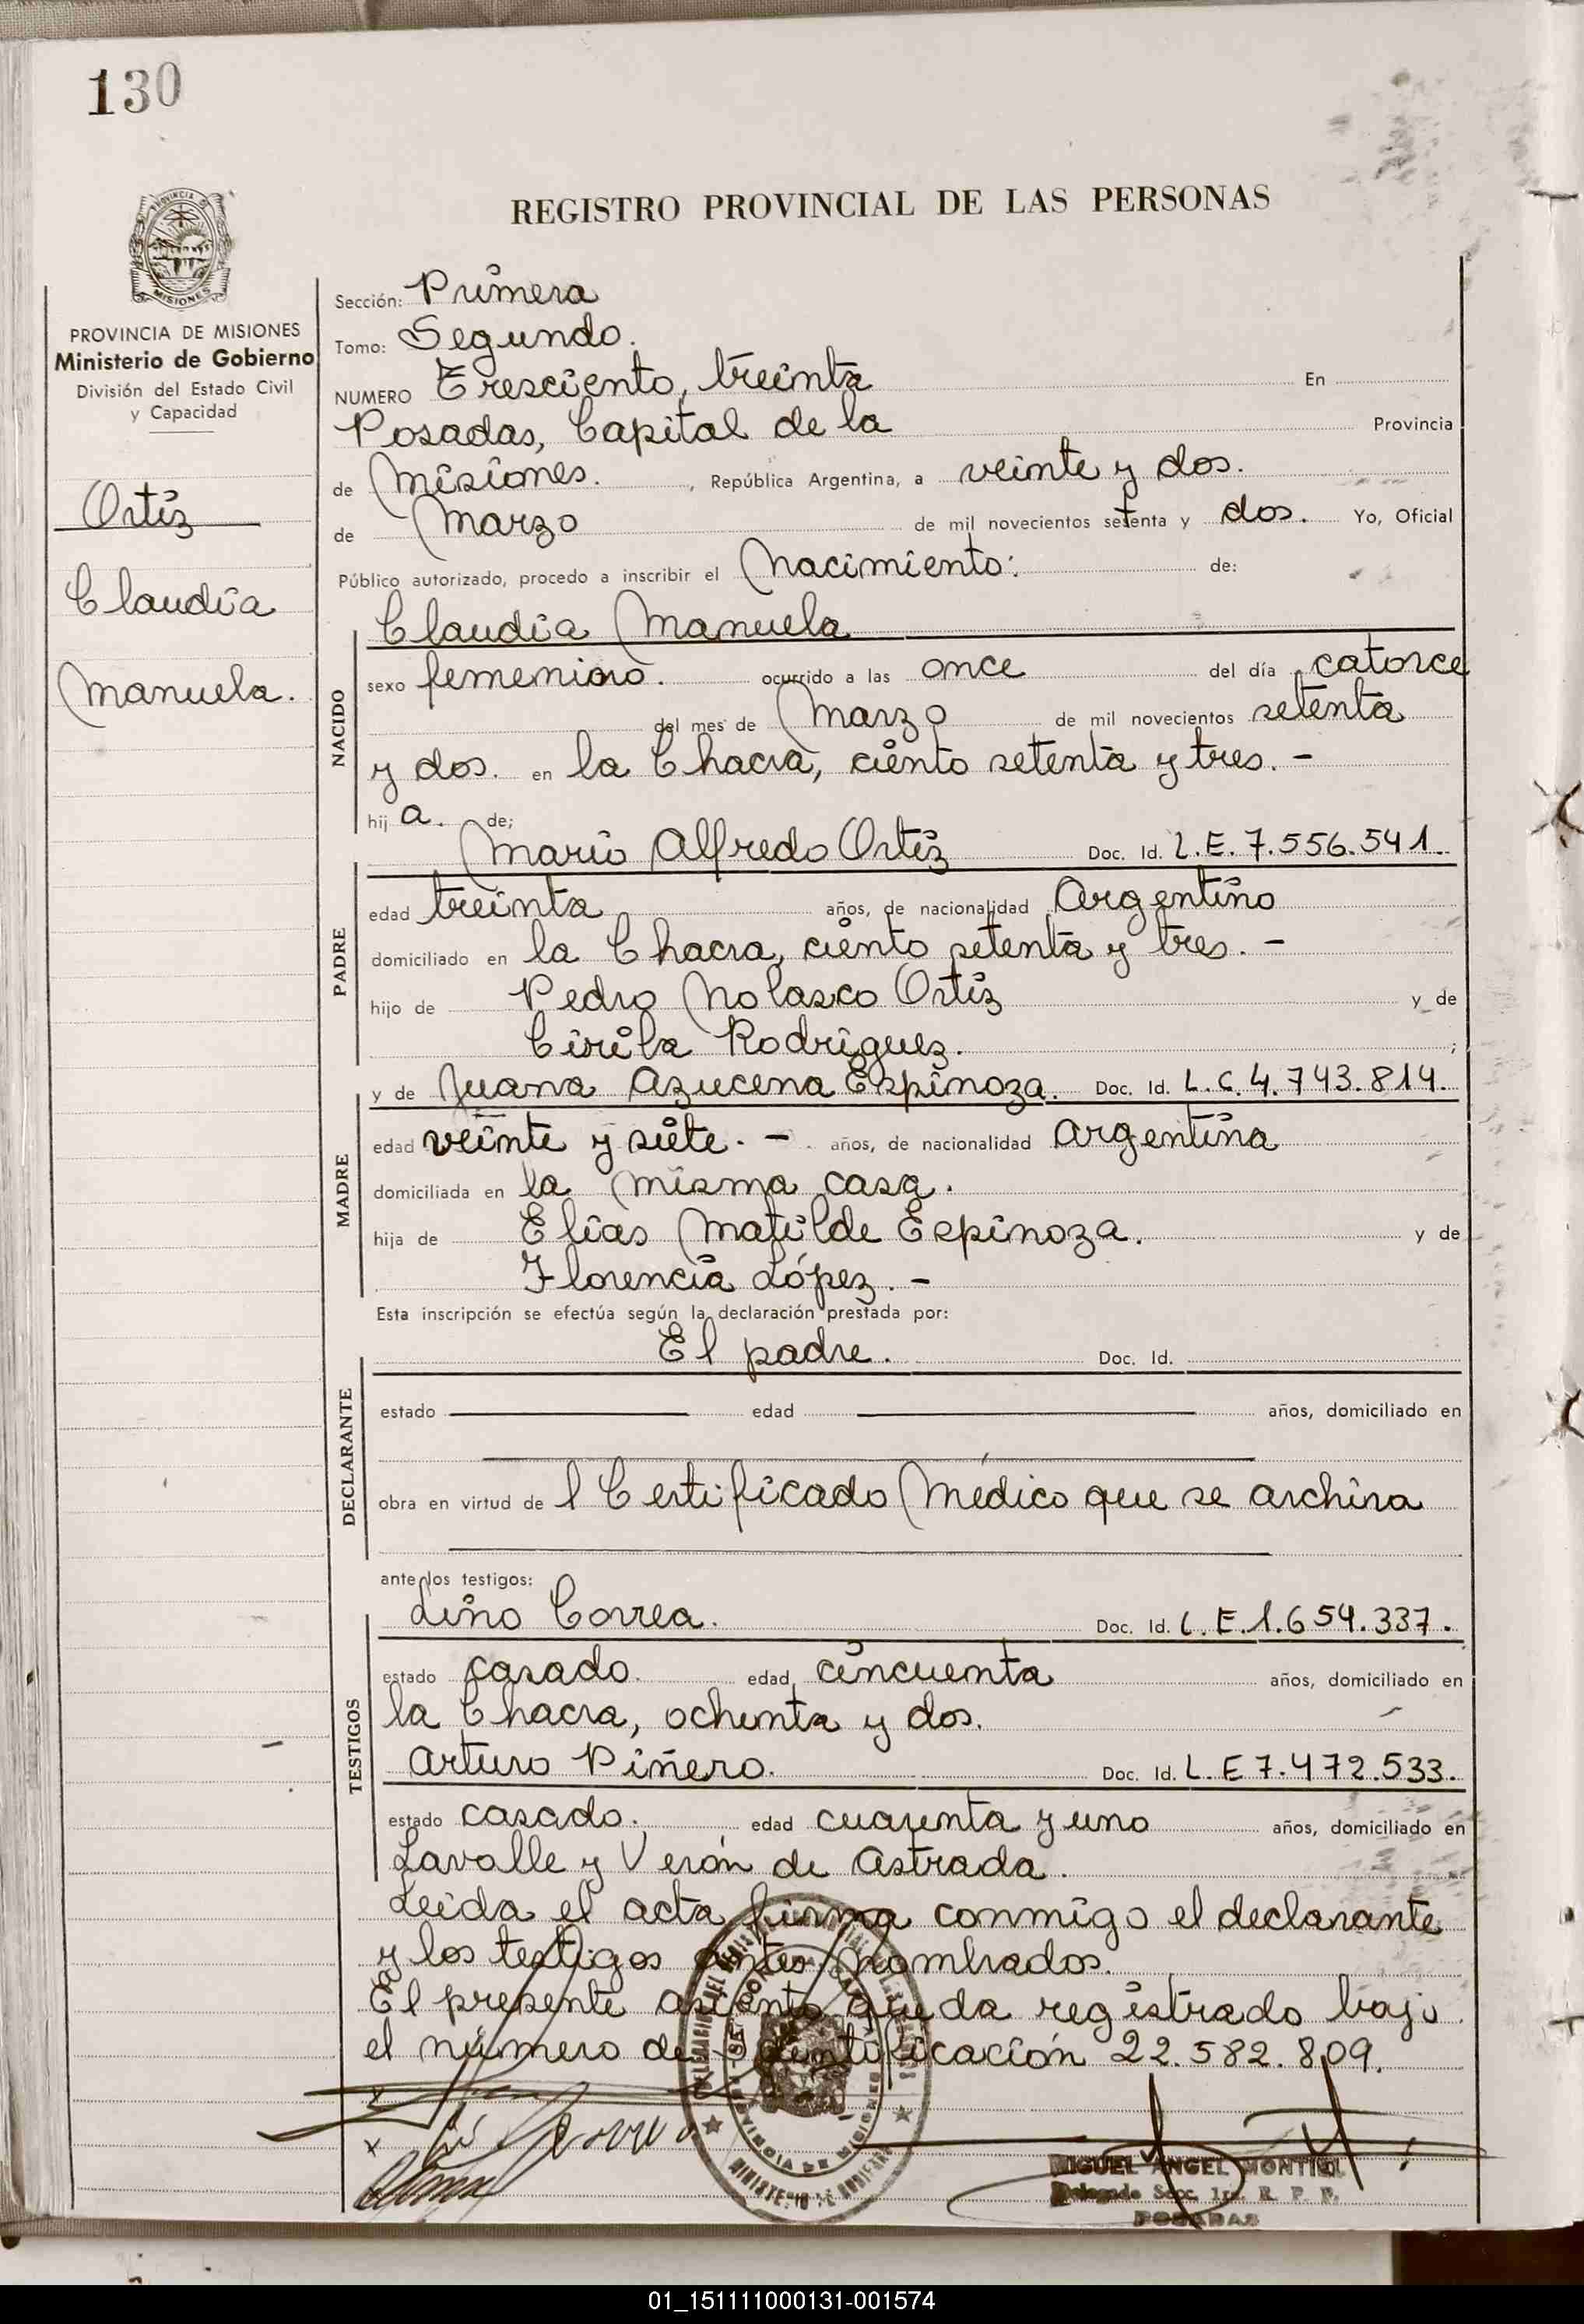 130
REGISTRO PROVINCIAL DE LAS PERSONAS
PROVINCIA DE MISIONES
Ministerio de Gobierno
División del Estado Civil
y Capacidad
Ortiz
Claudia
Manuela.
Sección: Primera
Tomo: Segundo.
NUMERO Tresciento, treinta En
Posadas, Capital de la Provincia
de Misiones. , República Argentina, a veinte y dos.
de Marzo de mil novecientos setenta y dos. Yo, Oficial
Público autorizado, procedo a inscribir el Nacimiento: de:
NACIDO
Claudia Manuela
sexo femenino. ocurrido a las once del día catorce
del mes de Marzo de mil novecientos setenta
y dos. en la Chacra, ciento setenta y tres. -
hij a. de;
PADRE
Mario Alfredo Ortiz Doc. Id. L.E. 7.556.541.
edad treinta años, de nacionalidad Argentino
domiciliado en la Chacra, ciento setenta y tres. -
hijo de Pedro Nolasco Ortiz y de
Cirila Rodriguez. ;
MADRE
y de Juana Azucena Espinoza. Doc. Id. L.C. 4.743.814.
edad veinte y siete. - años, de nacionalidad Argentina
domiciliada en la misma casa.
hija de Elias Matilde Espinoza. y de
Florencia López. -
Esta inscripción se efectúa según la declaración prestada por:
DECLARANTE
El padre. Doc. Id.
estado edad años, domiciliado en
obra en virtud de l Certificado Médico que se archiva
ante los testigos:
TESTIGOS
Lino Correa. Doc. Id. L.E. 1.654.337.
estado casado. edad cincuenta años, domiciliado en
la Chacra, ochenta y dos.
Arturo Piñero. Doc. Id. L.E 7.472.533.
estado casado. edad cuarenta y uno años, domiciliado en
Lavalle y Verón de Astrada.
Leida el acta firma conmigo el declarante
y los testigos antes nombrados.
El presente asiento queda registrado bajo
el número de Identificación 22.582.809.
PROVINCIA DE MISIONES
MIGUEL ANGEL MONTIEL
Delegado Secc. 1ra. R. P. P.
POSADAS
01_151111000131-001574